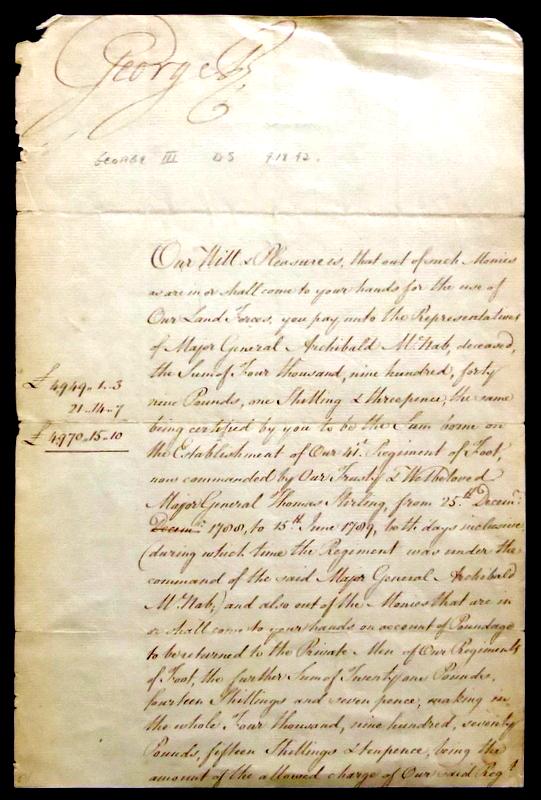 George R
GEORGE III DS 9.18.92.
Our Will & Pleasure is, that out of such Monies
as are in or shall come to your hands for the use of
Our Land Forces, you pay unto the Representatives
of Major General Archibald McNab, deceased,
the Sum of Four thousand, nine hundred, forty
nine Pounds, one Shilling & threepence, the same
being certified by you to be the Sum borne on
the Establishment of Our 41st Regiment of Foot,
now commanded by Our Trusty & Welbeloved
Major General Thomas Stirling, from 25th Decemr
Decemr 1788, to 15th June 1789, both days inclusive
(during which time the Regiment was under the
command of the said Major General Archibald
McNab,) and also out of the Monies that are in
or shall come to your hands on account of Poundage
to be returned to the Private Men of Our Regiments
of Foot, the further Sum of Twenty one Pounds,
fourteen Shillings and sevenpence, making in
the whole Four thousand, nine hundred, seventy
Pounds, fifteen Shillings & tenpence, being the
amount of the allowed charge of Our said Regt
£ 4949 .. 1 .. 3
21 .. 14 .. 7
£ 4970 .. 15 .. 10